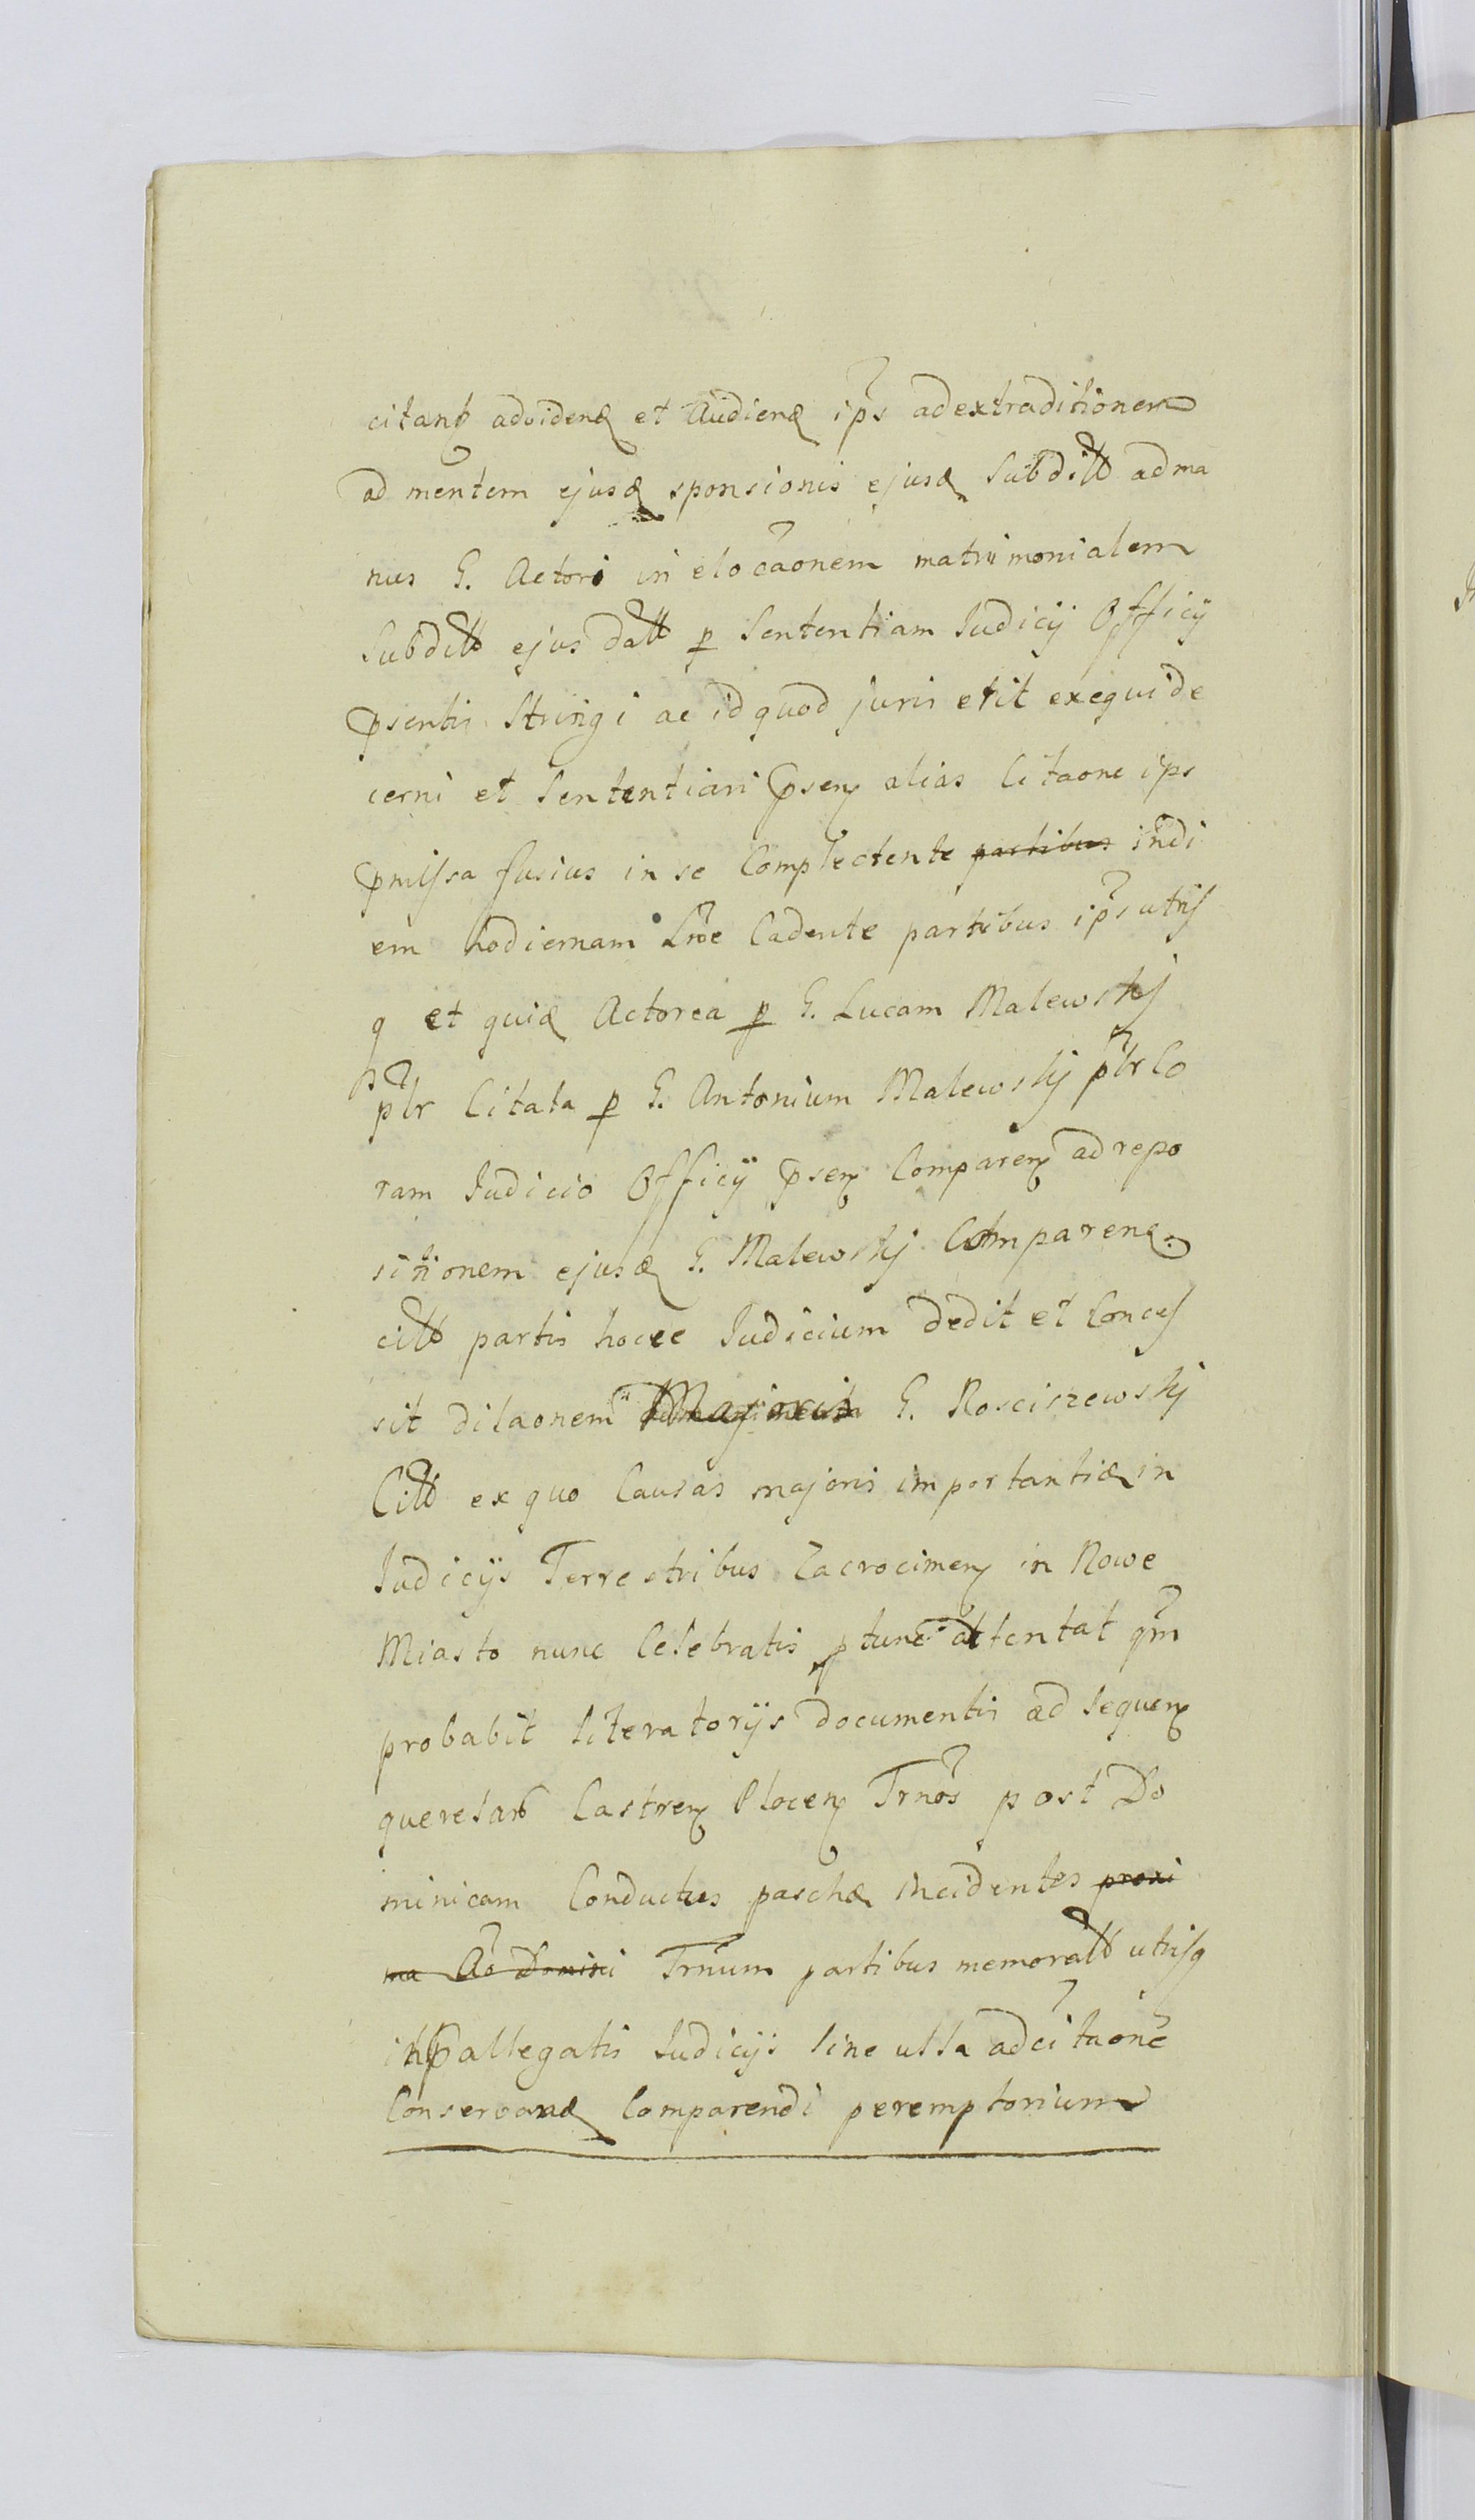 citant advidend et Audiend ips ad extraditionem
ad mentem ejusd sponsionis ejusd Subditt ad ma
nus G. Actori in elocaonem matrimonialem
Subditt ejus datt p Sententiam Judicij Officij
psentis Stringi ac id quod juris erit exequi de
cerni et Sententiari psen alias Citaone ips
pmissa fusius in se Complectente partibus in di
em hodiernam Cadente partibus ips utris
q et quid Actorea p G. Lucam Malewskj
plr Citata p G. Antonium Malewskj plr Co
ram Judicio Officij psen Comparen ad repo
sitionem ejusd G. Malewskj Comparen
citt partis hocce Judicium dedit et Conces
sit dilaonem G. Rosciszewskj
Citt ex quo Causas majoris importantiæ in
Judicijs Terrestribus Zacrocimen in Nowe
Miasto nunc Celebratis p tunc attentat qm
probabit literatorijs documentis ad sequen
querelar Castren Plocen Trnos post Do
minicam Conductus paschæ incidentes proxi
ma Ao Domini Trnum partibus memoratt utrisq
in pallegatis Judicijs sine ulla adcitaone
Conservand Comparendi peremptorium